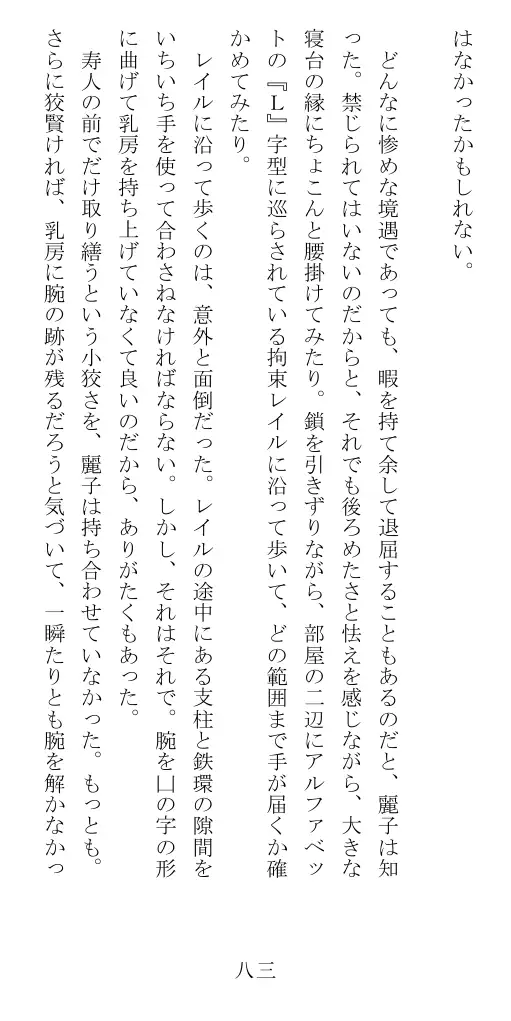 はなかったかもしれない。
　どんなに惨めな境遇であっても、暇を持て余して退屈することもあるのだと、麗子は知
った。禁じられてはいないのだからと、それでも後ろめたさと怯えを感じながら、大きな
寝台の縁にちょこんと腰掛けてみたり。鎖を引きずりながら、部屋の二辺にアルファベッ
トの『Ｌ』字型に巡らされている拘束レイルに沿って歩いて、どの範囲まで手が届くか確
かめてみたり。
　レイルに沿って歩くのは、意外と面倒だった。レイルの途中にある支柱と鉄環の隙間を
いちいち手を使って合わさねなければならない。しかし、それはそれで。腕を凵の字の形
に曲げて乳房を持ち上げていなくて良いのだから、ありがたくもあった。
　寿人の前でだけ取り繕うという小狡さを、麗子は持ち合わせていなかった。もっとも。
さらに狡賢ければ、乳房に腕の跡が残るだろうと気づいて、一瞬たりとも腕を解かなかっ
八三